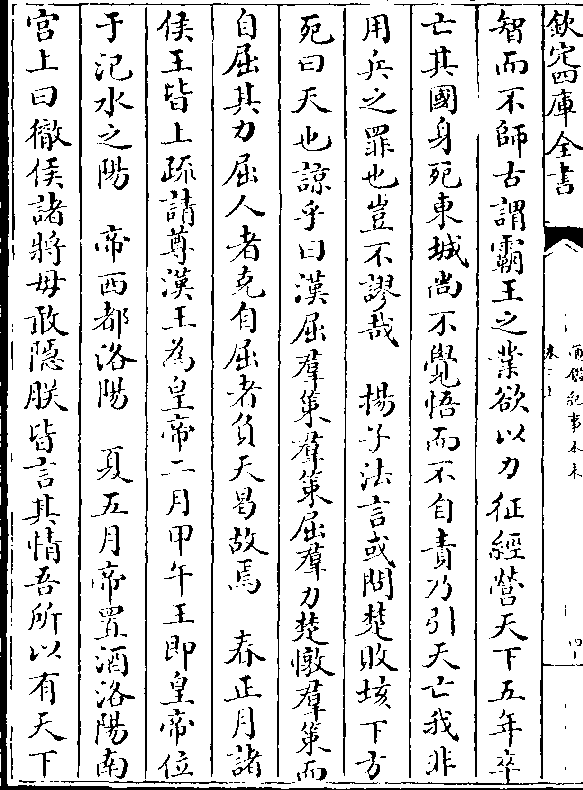 欽定四庫全書
智而不師古謂霸王之業欲以力征經營天下五年卒
亡其國身死東城尚不覺悟而不自責乃引天亡我非
用兵之罪也豈不謬哉　揚子法言或問楚敗垓下方
死曰天也諒乎曰漢屈羣策羣策屈羣力楚憞羣策而
自屈其力屈人者克自屈者負天曷故焉　春正月諸
侯王皆上疏請尊漢王為皇帝二月甲午王即皇帝位
于汜水之陽　帝西都洛陽　夏五月帝置酒洛陽南
宫上曰徹侯諸將毋敢隱朕皆言其情吾所以有天下